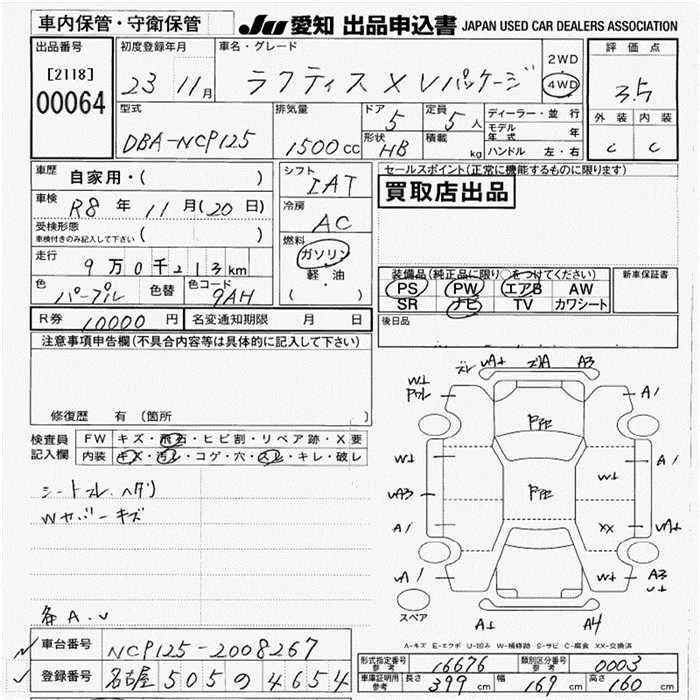 車内保管・守衛保管
JU 愛知 出品申込書 JAPAN USED CAR DEALERS ASSOCIATION
出品番号
[2118]
00064
初度登録年月
23 11月
車名・グレード
ラクティス X Vパッケージ
2WD
4WD
評価点
3.5
外装 内装
C C
型式
DBA-NCP125
排気量
1500cc
ドア 5
形状 HB
定員 5人
積載 kg
ディーラー・並行
モデル年式 年
ハンドル 左・右
車歴 自家用・( )
車検 R8年 11月(20日)
受検形態
車検付きのみ記入して下さい ( )
走行 9万0千213km
色 パープル 色替 色コード 9AH
シフト IAT
冷房 AC
燃料
ガソリン
軽・油
( )
セールスポイント(正常に機能するものに限ります)
買取店出品
装備品(純正品に限り○をつけてください)
PS PW エアB AW
SR ナビ TV カワシート
新車保証書
後日品
R券 10000円 名変通知期限 月 日
注意事項申告欄(不具合内容等は具体的に記入して下さい)
修復歴 有 (箇所 )
検査員記入欄
FW キズ・飛石・ヒビ割・リペア跡・X要
内装 キズ・汚レ・コゲ・穴・スレ・キレ・破レ
シートスレ. ヘタリ
Wカバーキズ
ズレ UA± ズレA A3
W±
A1
W±
A1
UA3
W±
A1
XX
UA±
UA1
W±
A3
U±
A±
A4
スペア
A-キズ E-エクボ U-凹み W-補修跡 S-サビ C-腐食 XX-交換済
車台番号 NCP125-2008267
登録番号 名古屋 505 の 4654
形式指定番号 参考 16676
類別区分番号 参考 0003
車庫証明用 参考 長さ 399cm 幅 169cm 高さ 160cm